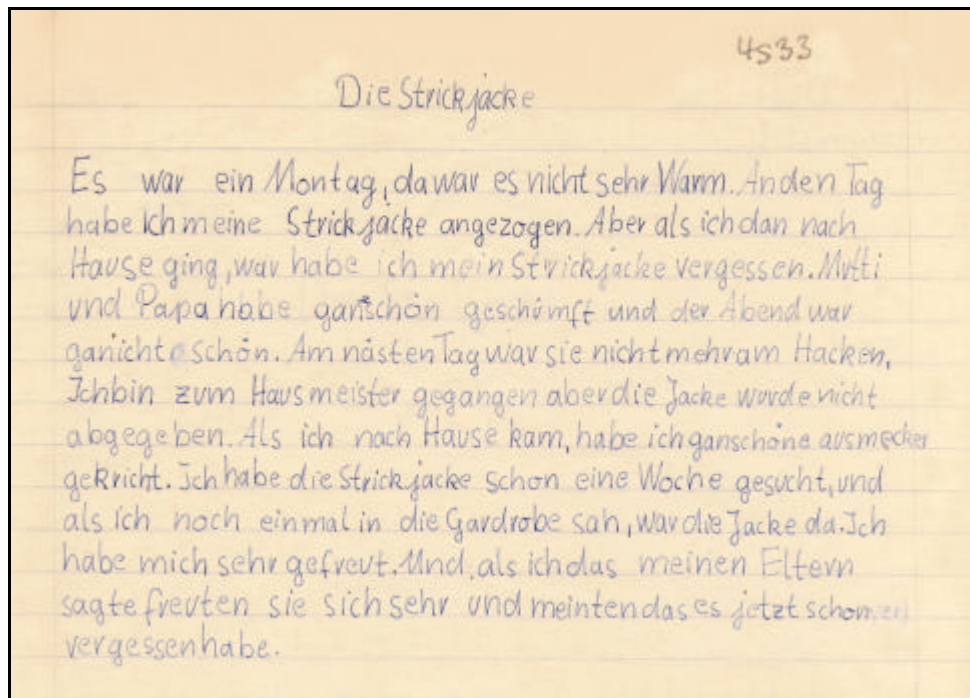 4s33
Die Strickjacke
Es war ein Montag, da war es nicht sehr Warm. An den Tag
habe Ich meine Strickjacke angezogen. Aber als ich dan nach
Hause ging, war habe ich mein Strickjacke vergessen. Mutti
und Papa habe ganschön geschimft und der Abend war
ganicht schön. Am nästen Tag war sie nicht mehr am Hacken,
Ich bin zum Hausmeister gegangen aber die Jacke wurde nicht
abgegeben. Als ich nach Hause kam, habe ich ganschöne ausmecker
gekricht. Ich habe die Strickjacke schon eine Woche gesucht, und
als ich noch einmal in die Gardrobe sah, war die Jacke da. Ich
habe mich sehr gefreut. Und, als ich das meinen Eltern
sagte freuten sie sich sehr und meinten das es jetzt schon
vergessen habe.